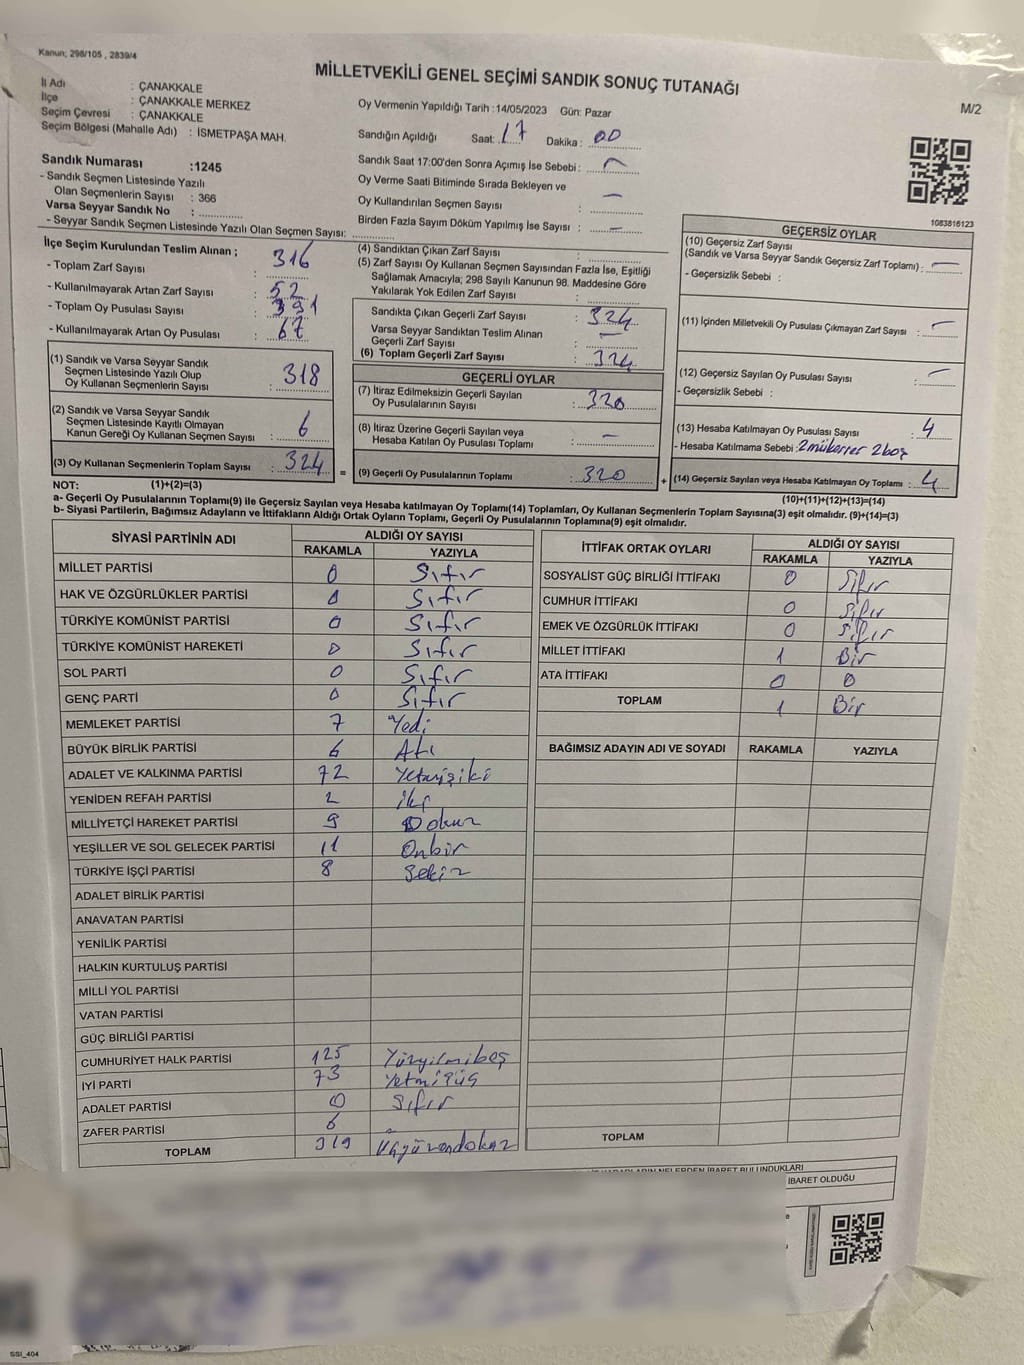 Kanun; 298/105 , 2839/4
MİLLETVEKİLİ GENEL SEÇİMİ SANDIK SONUÇ TUTANAĞI
M/2
İl Adı : ÇANAKKALE
İlçe : ÇANAKKALE MERKEZ
Seçim Çevresi : ÇANAKKALE
Seçim Bölgesi (Mahalle Adı) : İSMETPAŞA MAH.
Sandık Numarası :1245
- Sandık Seçmen Listesinde Yazılı
Olan Seçmenlerin Sayısı : 366
Varsa Seyyar Sandık No :
- Seyyar Sandık Seçmen Listesinde Yazılı Olan Seçmen Sayısı:
Oy Vermenin Yapıldığı Tarih :14/05/2023 Gün: Pazar
Sandığın Açıldığı Saat: 17 Dakika : 00
Sandık Saat 17:00'den Sonra Açımış İse Sebebi : –
Oy Verme Saati Bitiminde Sırada Bekleyen ve
Oy Kullandırılan Seçmen Sayısı : –
Birden Fazla Sayım Döküm Yapılmış İse Sayısı : –
1083816123
İlçe Seçim Kurulundan Teslim Alınan ;
- Toplam Zarf Sayısı : 316
- Kullanılmayarak Artan Zarf Sayısı : 52
- Toplam Oy Pusulası Sayısı : 391
- Kullanılmayarak Artan Oy Pusulası : 67
(1) Sandık ve Varsa Seyyar Sandık
Seçmen Listesinde Yazılı Olup
Oy Kullanan Seçmenlerin Sayısı : 318
(2) Sandık ve Varsa Seyyar Sandık
Seçmen Listesinde Kayıtlı Olmayan
Kanun Gereği Oy Kullanan Seçmen Sayısı : 6
(3) Oy Kullanan Seçmenlerin Toplam Sayısı : 324 =
(4) Sandıktan Çıkan Zarf Sayısı :
(5) Zarf Sayısı Oy Kullanan Seçmen Sayısından Fazla İse, Eşitliği
Sağlamak Amacıyla; 298 Sayılı Kanunun 98. Maddesine Göre
Yakılarak Yok Edilen Zarf Sayısı :
Sandıkta Çıkan Geçerli Zarf Sayısı : 324
Varsa Seyyar Sandıktan Teslim Alınan
Geçerli Zarf Sayısı : –
(6) Toplam Geçerli Zarf Sayısı : 324
GEÇERLİ OYLAR
(7) İtiraz Edilmeksizin Geçerli Sayılan
Oy Pusulalarının Sayısı : 320
(8) İtiraz Üzerine Geçerli Sayılan veya
Hesaba Katılan Oy Pusulası Toplamı : –
(9) Geçerli Oy Pusulalarının Toplamı : 320 +
GEÇERSİZ OYLAR
(10) Geçersiz Zarf Sayısı
(Sandık ve Varsa Seyyar Sandık Geçersiz Zarf Toplamı) : –
- Geçersizlik Sebebi :
(11) İçinden Milletvekili Oy Pusulası Çıkmayan Zarf Sayısı : –
(12) Geçersiz Sayılan Oy Pusulası Sayısı : –
- Geçersizlik Sebebi :
(13) Hesaba Katılmayan Oy Pusulası Sayısı : 4
- Hesaba Katılmama Sebebi : 2mükerrer 2boş
(14) Geçersiz Sayılan veya Hesaba Katılmayan Oy Toplamı : 4
NOT: (1)+(2)=(3)
(10)+(11)+(12)+(13)=(14)
a- Geçerli Oy Pusulalarının Toplamı(9) ile Geçersiz Sayılan veya Hesaba katılmayan Oy Toplamı(14) Toplamları, Oy Kullanan Seçmenlerin Toplam Sayısına(3) eşit olmalıdır. (9)+(14)=(3)
b- Siyasi Partilerin, Bağımsız Adayların ve İttifakların Aldığı Ortak Oyların Toplamı, Geçerli Oy Pusulalarının Toplamına(9) eşit olmalıdır.
SİYASİ PARTİNİN ADI ALDIĞI OY SAYISI
RAKAMLA YAZIYLA
MİLLET PARTİSİ 0 Sıfır
HAK VE ÖZGÜRLÜKLER PARTİSİ 0 Sıfır
TÜRKİYE KOMÜNİST PARTİSİ 0 Sıfır
TÜRKİYE KOMÜNİST HAREKETİ 0 Sıfır
SOL PARTİ 0 Sıfır
GENÇ PARTİ 0 Sıfır
MEMLEKET PARTİSİ 7 Yedi
BÜYÜK BİRLİK PARTİSİ 6 Altı
ADALET VE KALKINMA PARTİSİ 72 Yetmişiki
YENİDEN REFAH PARTİSİ 2 iki
MİLLİYETÇİ HAREKET PARTİSİ 9 Dokuz
YEŞİLLER VE SOL GELECEK PARTİSİ 11 Onbir
TÜRKİYE İŞÇİ PARTİSİ 8 Sekiz
ADALET BİRLİK PARTİSİ
ANAVATAN PARTİSİ
YENİLİK PARTİSİ
HALKIN KURTULUŞ PARTİSİ
MİLLİ YOL PARTİSİ
VATAN PARTİSİ
GÜÇ BİRLİĞİ PARTİSİ
CUMHURİYET HALK PARTİSİ 125 Yüzyirmibeş
İYİ PARTİ 73 Yetmişüç
ADALET PARTİSİ 0 Sıfır
ZAFER PARTİSİ 6
TOPLAM 319 Üçyüzondokuz
İTTİFAK ORTAK OYLARI ALDIĞI OY SAYISI
RAKAMLA YAZIYLA
SOSYALİST GÜÇ BİRLİĞİ İTTİFAKI 0 Sıfır
CUMHUR İTTİFAKI 0 Sıfır
EMEK VE ÖZGÜRLÜK İTTİFAKI 0 Sıfır
MİLLET İTTİFAKI 1 Bir
ATA İTTİFAKI 0 0
TOPLAM 1 Bir
BAĞIMSIZ ADAYIN ADI VE SOYADI RAKAMLA YAZIYLA
TOPLAM
NELERDEN İBARET BULUNDUKLARI
İBARET OLDUĞU
SSI_404